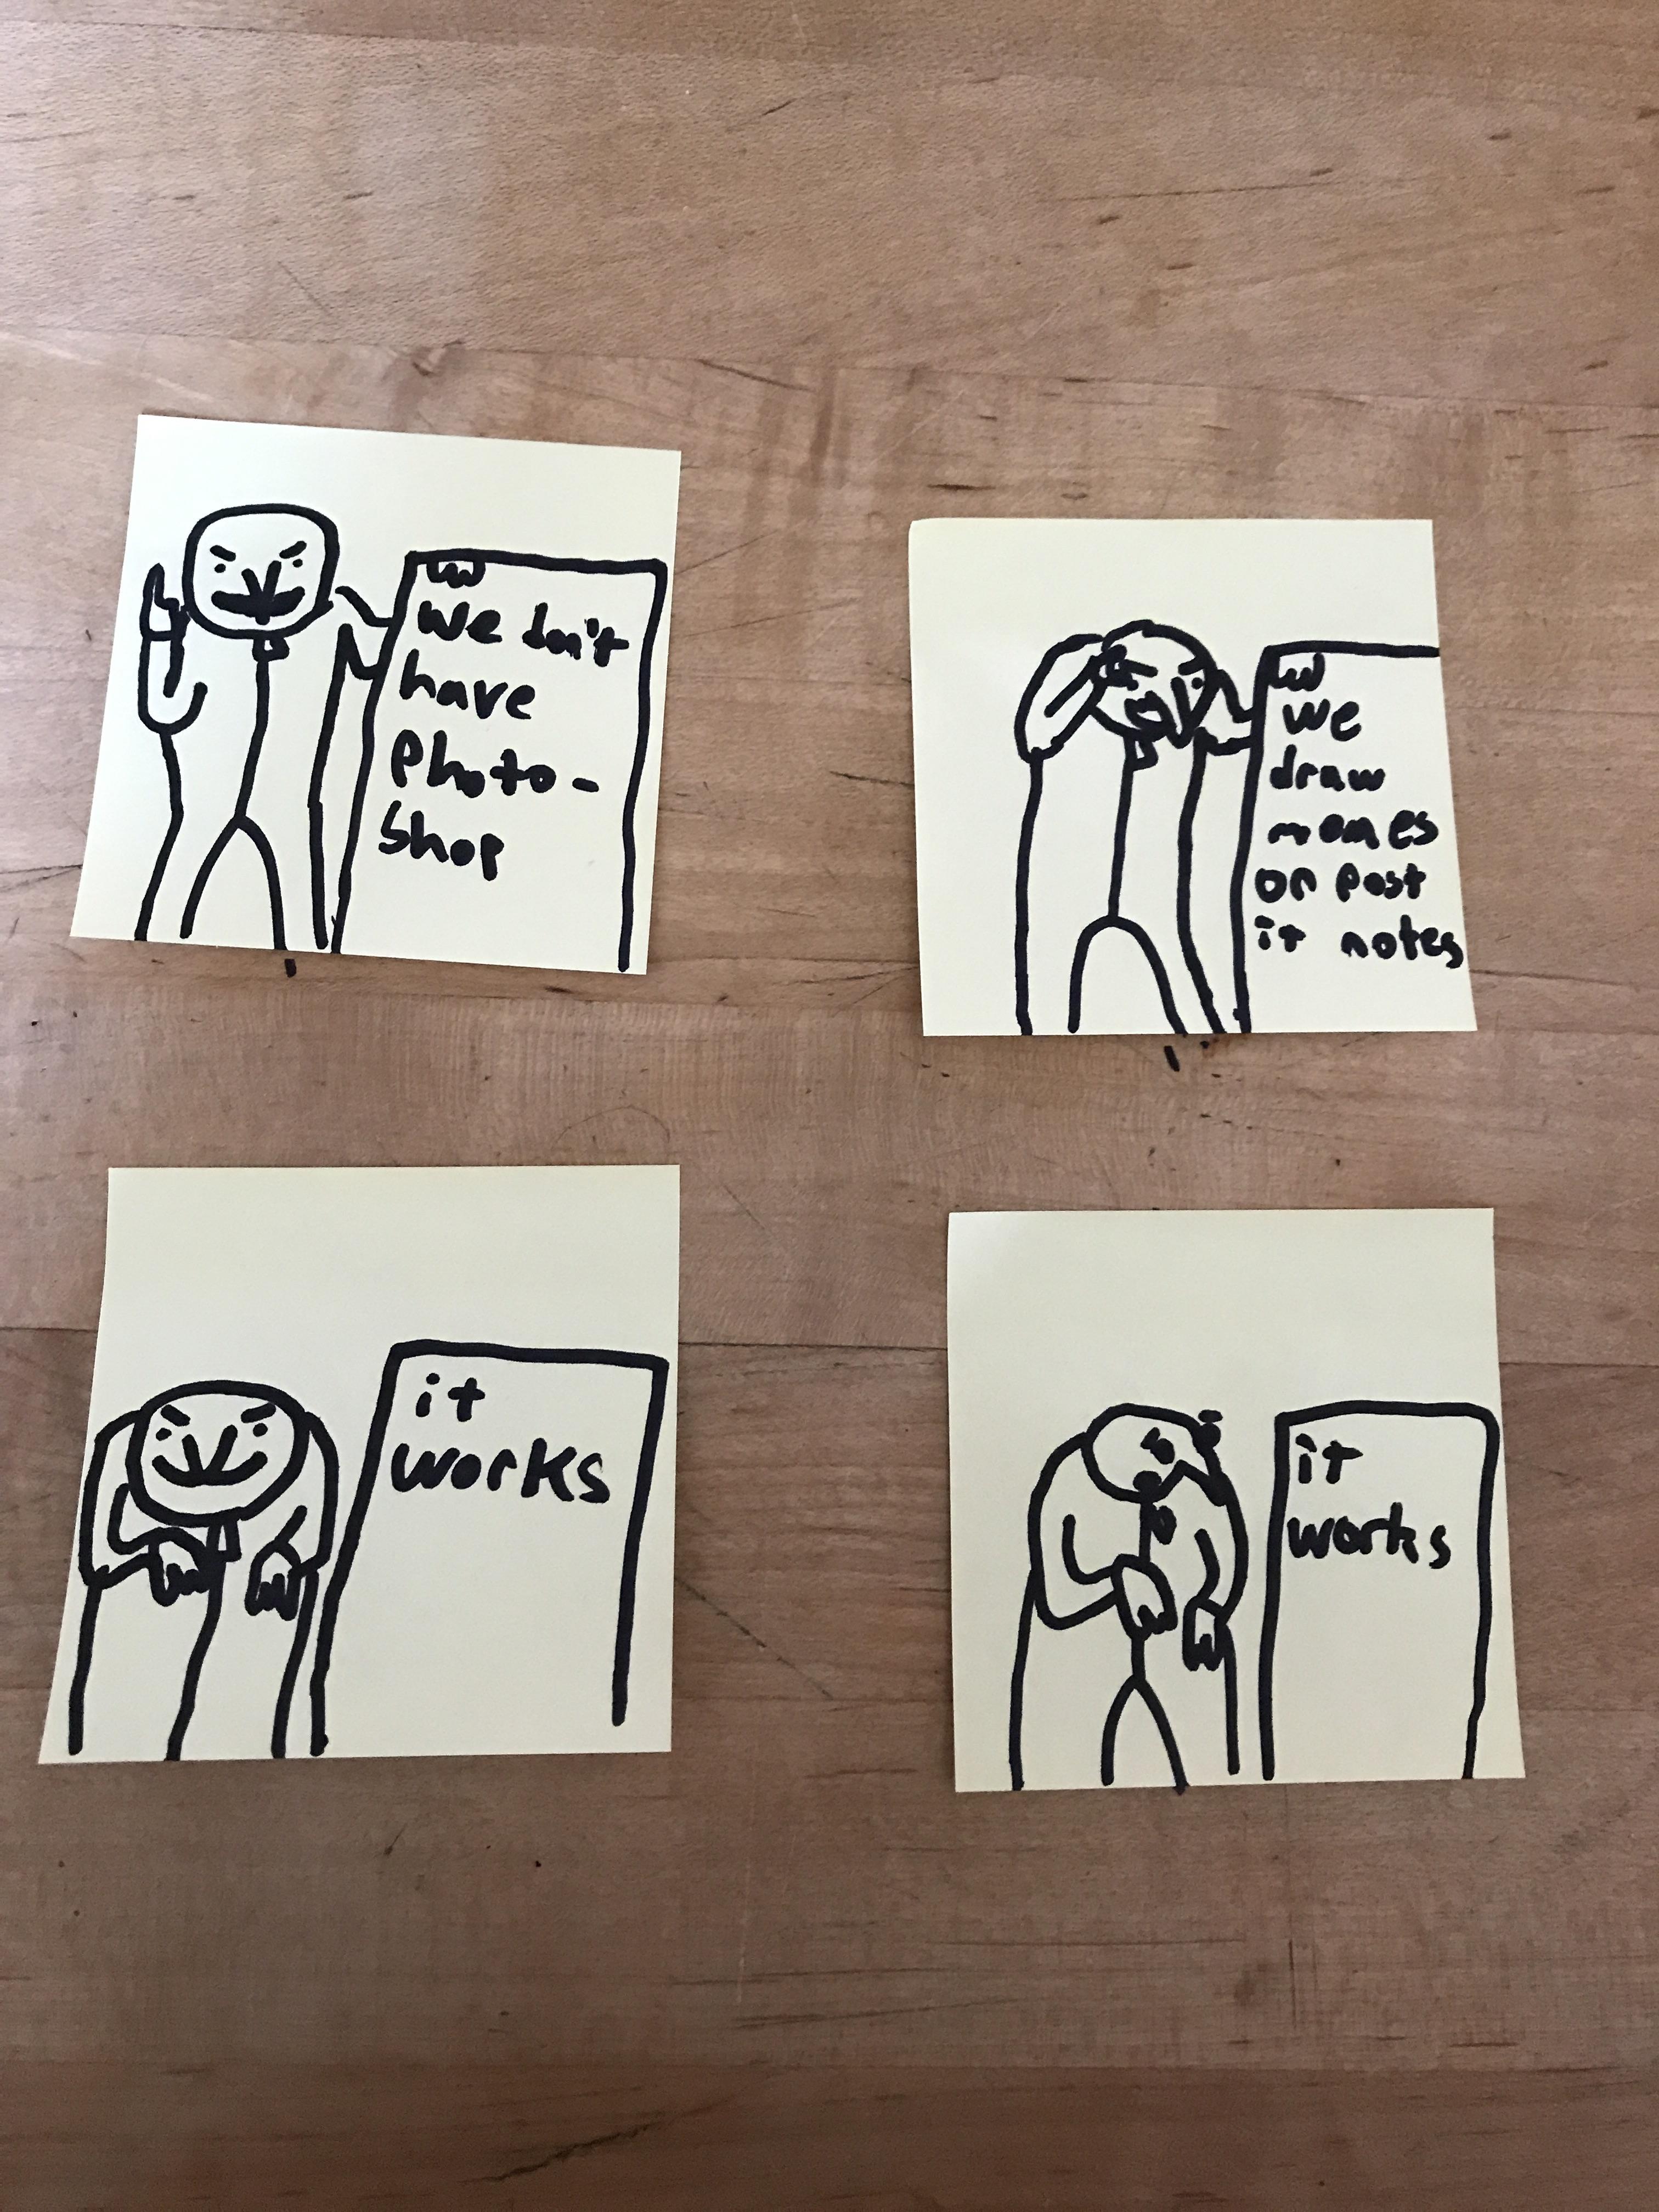 we don't
have
Photo-
shop
we
draw
memes
on post
it notes
it
works
it
works